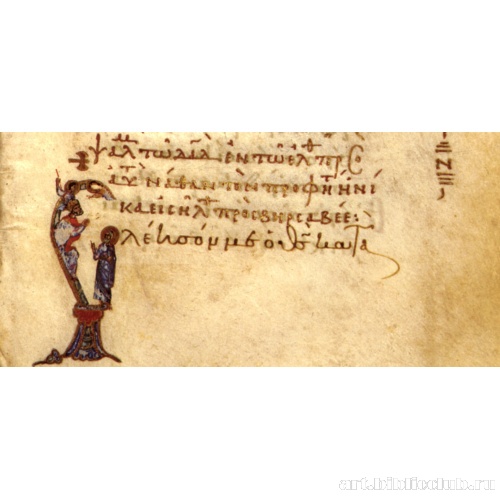 ψαλμ τῶ δᾱδ ἐν τῶ ἐλθ πρὸσ
ἀυ νάθαν τὸν προφητ ἡνί
κα εἰσηλθ πρὸσ βηρσαβεέ:
Ελέησόν με ὁ θ̅ς κατὰ
art.biblioclub.ru